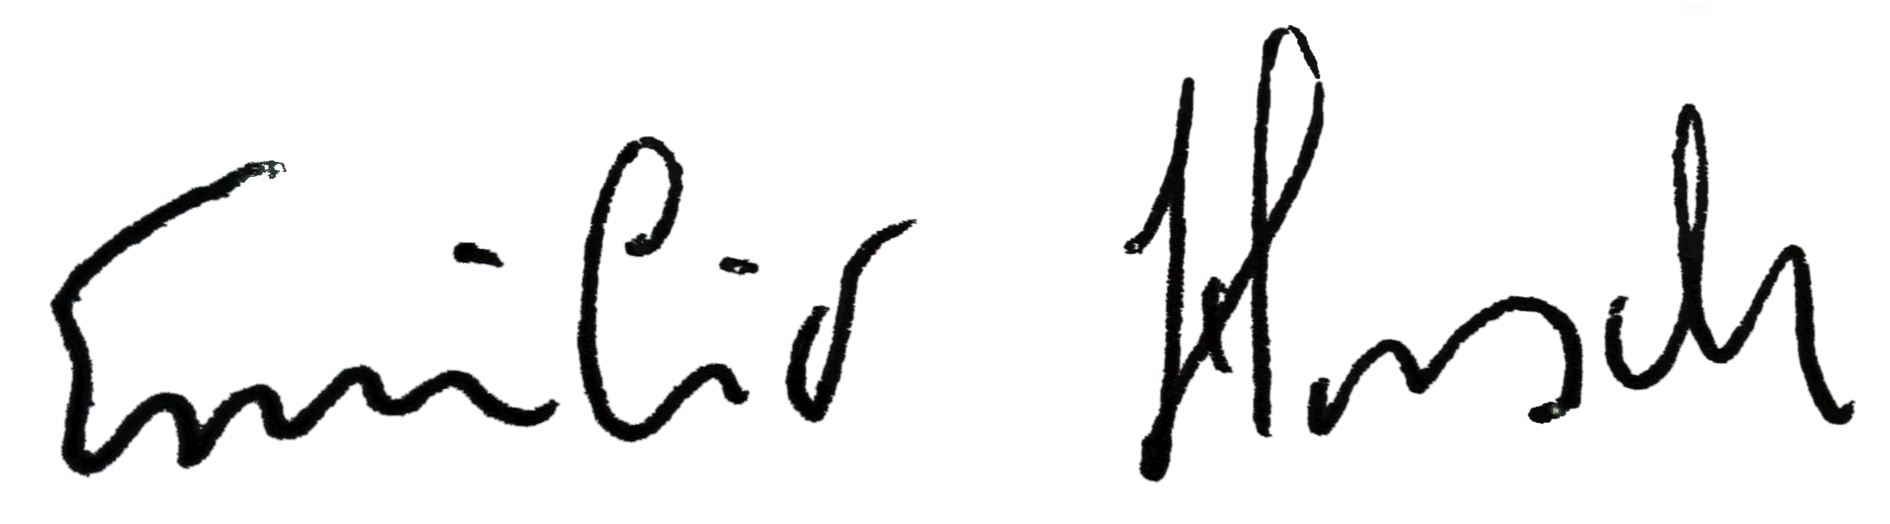 Emilio Hirsch